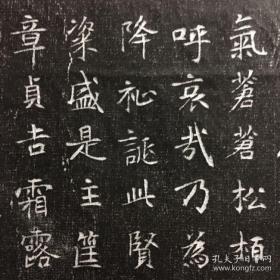 氣蒼蒼松栢
呼哀哉乃為
降祉誕此賢
粢盛是主筐
章貞吉霜露